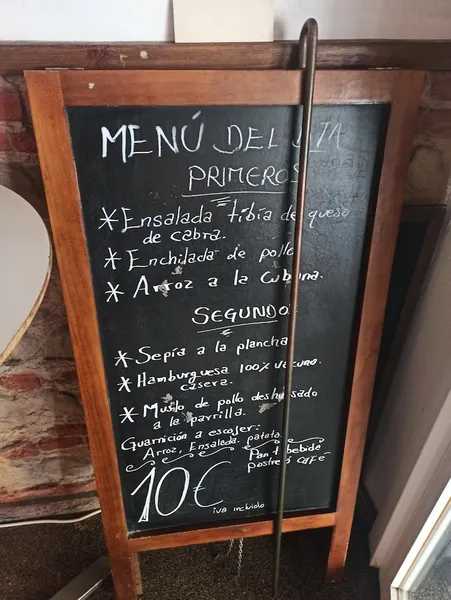 MENÚ DEL DIA
PRIMEROS
* Ensalada tibia de queso
de cabra.
* Enchilada de pollo
* Arroz a la cubana.
SEGUNDOS
* Sepia a la plancha
* Hamburguesa 100% vacuno.
casera.
* Muslo de pollo deshuesado
a la parrilla.
Guarnición a escojer:
Arroz, Ensalada, patata
Pan + bebida
postre ó café
10€
iva incluido